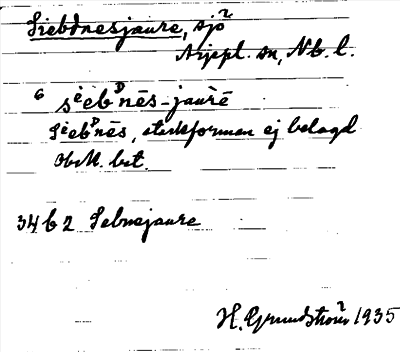 Siebdnesjaure, sjö
Arjepl. sn, Nb. l.
6 sⁱebᴰnēs-jaùrē
sⁱebᴰnēs, starkforman ej belagd
Obek. bet.
34 b 2 Sebnejaure
H. Grundström 1935